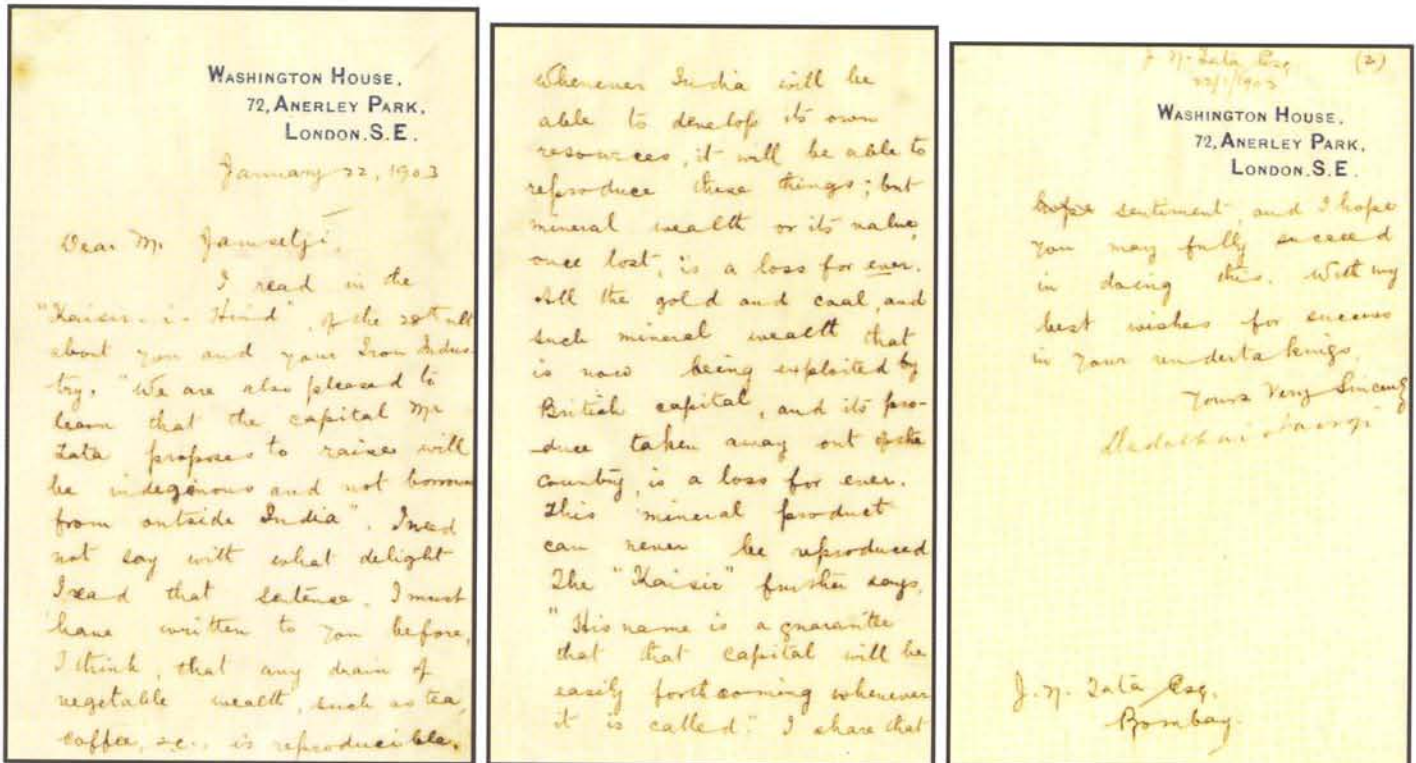 WASHINGTON HOUSE,
72, ANERLEY PARK,
LONDON. S.E.
January 22, 1903
Dear Mr Jamsetji,
I read in the
"Kaiser-i-Hind", of the 28th ult
about you and your Iron Indus-
try. "We are also pleased to
learn that the capital Mr
Tata proposes to raise will
be indegenous and not borrow
from outside India". I need
not say with what delight
I read that sentence. I must
have written to you before,
I think, that any drain of
vegetable wealth, such as tea,
coffee, &c., is reproducible.
Whenever India will be
able to develop its own
resources, it will be able to
reproduce these things; but
mineral wealth or its value,
once lost, is a loss for ever.
All the gold and coal, and
such mineral wealth that
is now being exploited by
British capital, and its pro-
duce taken away out of the
country, is a loss for ever.
This mineral product
can never be reproduced
The "Kaisir" further says,
"His name is a guarantee
that that capital will be
easily forthcoming whenever
it is called." I share that
J. N. Tata Esq. (2)
22/1/1903
WASHINGTON HOUSE,
72, ANERLEY PARK,
LONDON. S.E.
sentiment, and I hope
you may fully succeed
in doing this. With my
best wishes for success
in your undertakings.
Yours Very Sincerely
Dadabhai Naoroji
J. N. Tata Esq.
Bombay.